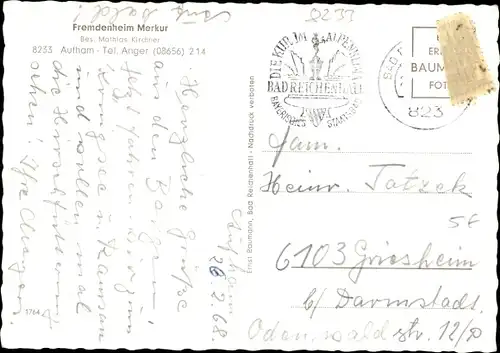 auf bald!
8233
Fremdenheim Merkur
Bes. Mathias Kirchner
8233 Aufham - Tel. Anger (08656) 214
Aufham
26.2.68.
Herzliche Grüße
aus den Bergen.
Jetzt fahren wir zum
Königssee u. Ramsau
und wollen mal
die Hirschfütterung
sehen!
Ernst Baumann, Bad Reichenhall - Nachdruck verboten
1764
DIE KUR IM ALPENKLIMA
BAD REICHENHALL
BAYERISCHES STAATSBAD
BAD
823
BAUM
FOT
Fam.
Heinr. Tatzek
6103 Griesheim
b/ Darmstadt
Odenwaldstr. 12/D